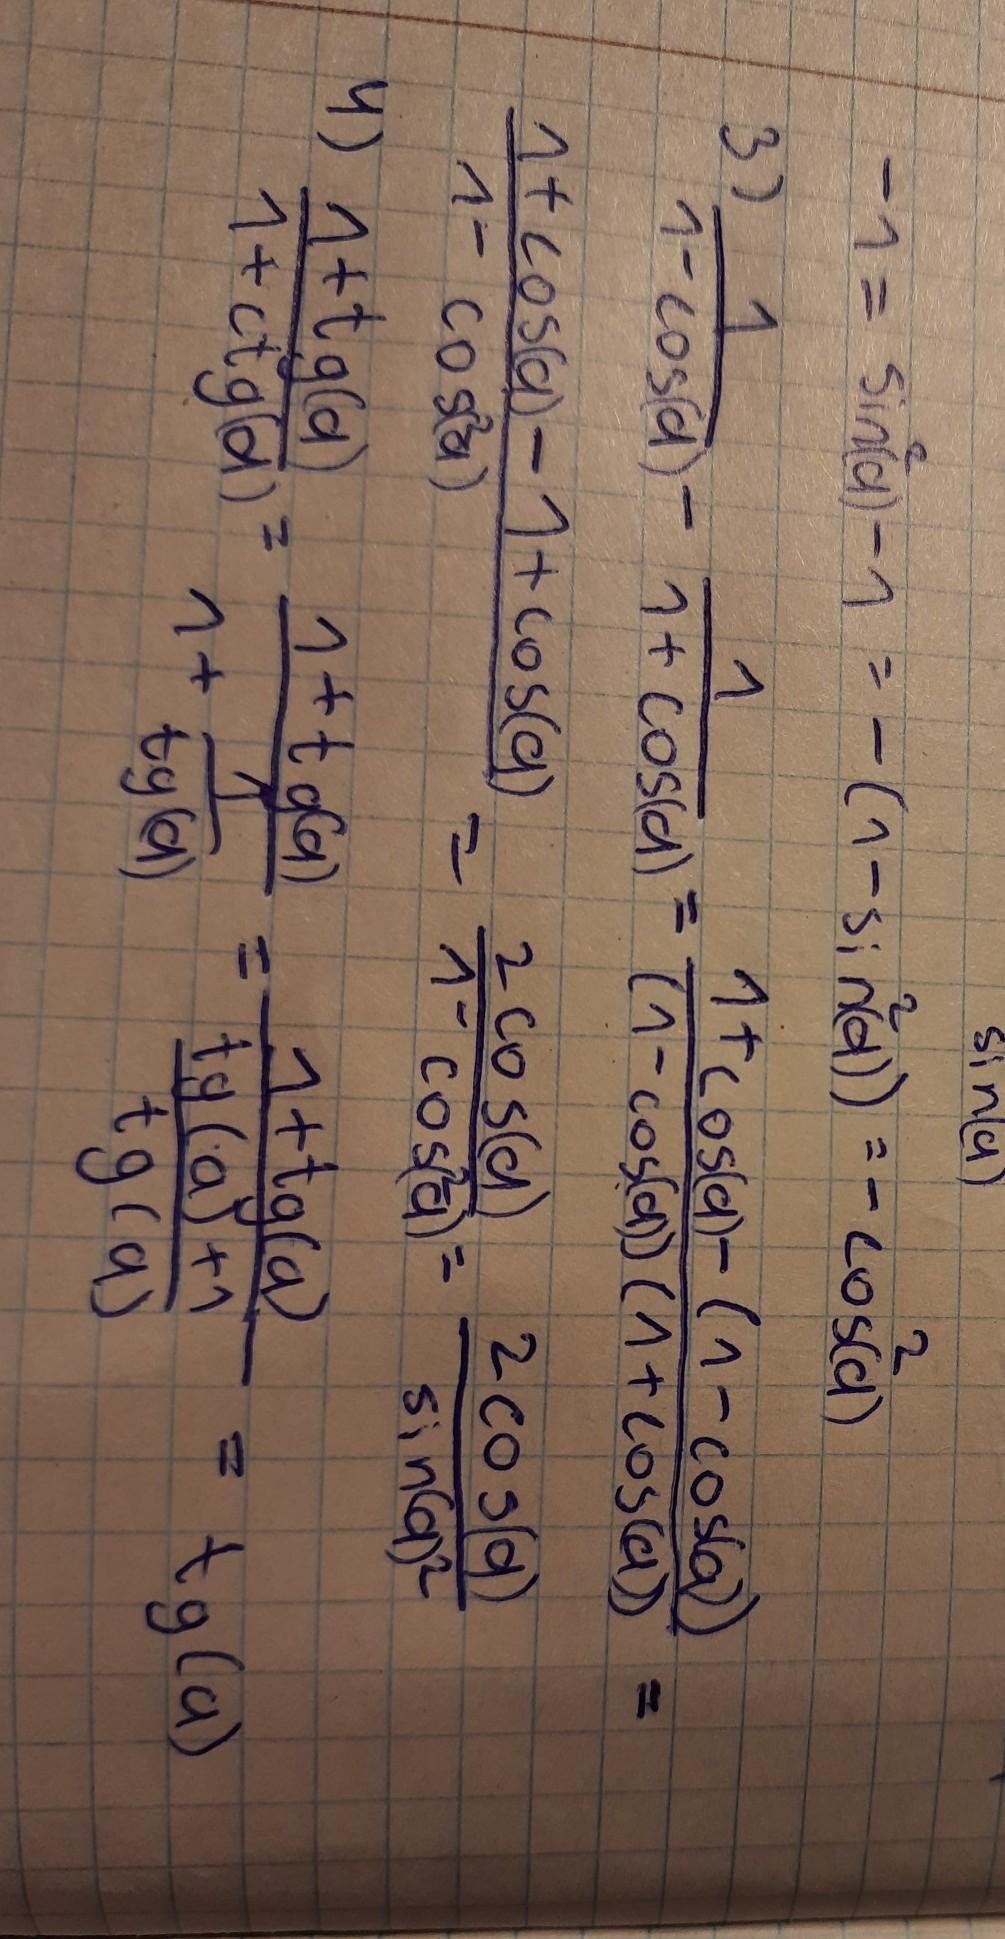 sin(a)
-1 = sin²(a) - 1 = -(1 - sin²(a)) = -cos²(a)
3) 1/(1 - cos(a)) - 1/(1 + cos(a)) = (1 + cos(a) - (1 - cos(a)))/((1 - cos(a))(1 + cos(a))) =
(1 + cos(a) - 1 + cos(a))/(1 - cos²(a)) = 2cos(a)/(1 - cos²(a)) = 2cos(a)/sin(a)²
4) (1 + tg(a))/(1 + ctg(a)) = (1 + tg(a))/(1 + 1/tg(a)) = (1 + tg(a))/((tg(a) + 1)/tg(a)) = tg(a)